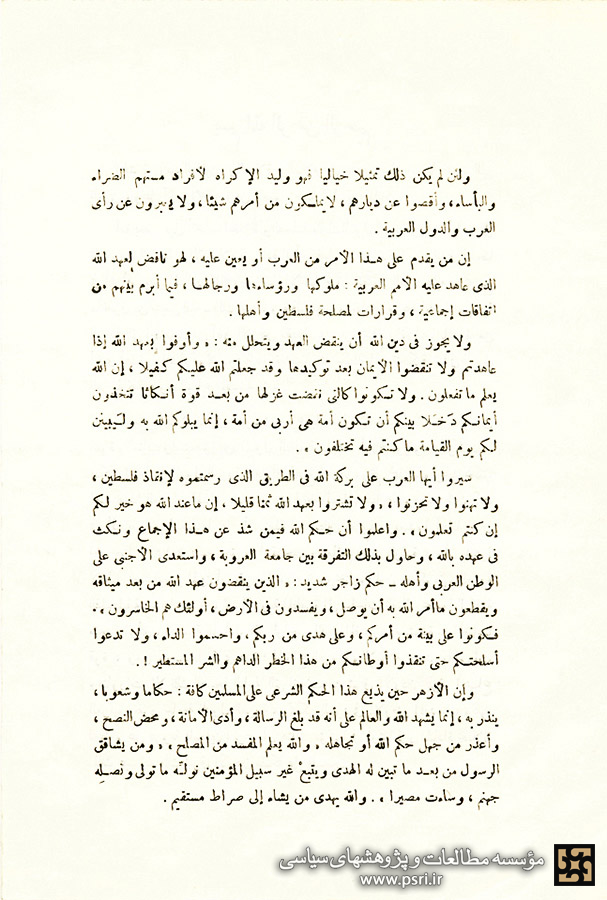 ولئن لم يكن ذلك تمثيلا خياليا فهو وليد الإكراه لأفراد مستهم الضراء
والبأساء، وأقصوا عن ديارهم، لا يملكون من أمرهم شيئا، ولا يعبرون عن رأى
العرب والدول العربية.
إن من يقدم على هذا الأمر من العرب أو يعين عليه، لهو ناقض لعهد الله
الذى عاهد عليه الأمم العربية: ملوكها ورؤساءها ورجالها، فيما أبرم بينهم من
اتفاقات إجماعية، وقرارات لمصلحة فلسطين وأهلها.
ولا يجوز فى دين الله أن ينقض العهد ويتحلل منه: «وأوفوا بعهد الله إذا
عاهدتم ولا تنقضوا الأيمان بعد توكيدها وقد جعلتم الله عليكم كفيلا، إن الله
يعلم ما تفعلون. ولا تكونوا كالتى نقضت غزلها من بعد قوة أنكاثا تتخذون
أيمانكم دَخَلا بينكم أن تكون أمة هى أربى من أمة، إنما يبلوكم الله به وليبينن
لكم يوم القيامة ما كنتم فيه تختلفون».
سيروا أيها العرب على بركة الله فى الطريق الذى رسمتموه لإنقاذ فلسطين،
ولا تهنوا ولا تحزنوا، «ولا تشتروا بعهد الله ثمنا قليلا، إن ماعند الله هو خير لكم
إن كنتم تعلمون». واعلموا أن حكم الله فيمن شذ عن هذا الإجماع ونكث
فى عهده بالله، وحاول بذلك التفرقة بين جامعة العروبة، واستعدى الأجنبى على
الوطن العربى وأهله ــ حكم زاجر شديد: «الذين ينقضون عهد الله من بعد ميثاقه
ويقطعون ماأمر الله به أن يوصل، ويفسدون فى الأرض، أولئك هم الخاسرون».
فكونوا على بينة من أمركم، وعلى هدى من ربكم، واحسموا الداء، ولا تدعوا
أسلحتكم حتى تنقذوا أوطانكم من هذا الخطر الداهم والشر المستطير!.
وإن الأزهر حين يذيع هذا الحكم الشرعى على المسلمين كافة: حكاما وشعوبا،
ينذر به، إنما يشهد الله والعالم على أنه قد بلغ الرسالة، وأدى الأمانة، ومحض النصح،
وأعذر من جهل حكم الله أو تجاهله «والله يعلم المفسد من المصلح»، «ومن يشاقق
الرسول من بعد ما تبين له الهدى ويتبعْ غير سبيل المؤمنين نولّه ما تولى ونُصلِه
جهنم، وساءت مصيرا». والله يهدى من يشاء إلى صراط مستقيم.
مؤسسه مطالعات و پژوهشهای سیاسی
www.psri.ir